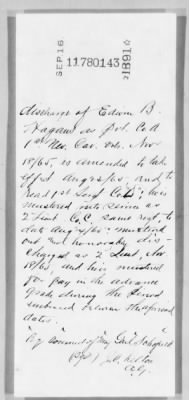 SEP 16
11780143
*1891*
discharge of Edwin B.
Hagans as pvt. Co A
1st Nev. Cav. Vols. Nov
18/65, is amended to take
effect Aug 9/65, and to
read 1st Sergt Co D; he is
mustered into service as
2 Lieut Co C, same regt, to
date Aug 10/65; mustered
out and honorably dis-
charged as 2 Lieut. Nov
18/65, and he is mustered
for pay in the advance
grade during the period
embraced between the aforesaid
dates.
"By command of Maj Genl Schofield
J.C. Kelton
A.G.